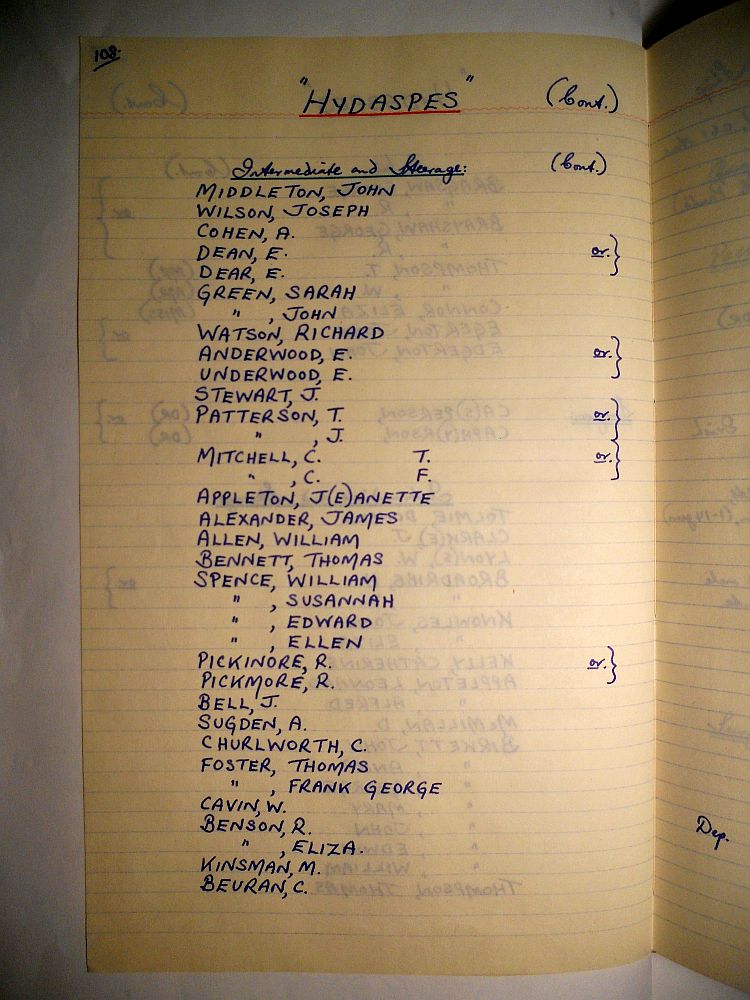 108.
"HYDASPES" (Cont.)
Intermediate and Steerage: (Cont.)
MIDDLETON, JOHN
WILSON, JOSEPH
COHEN, A.
DEAN, E. or. }
DEAR, E.
GREEN, SARAH
" , JOHN
WATSON, RICHARD
ANDERWOOD, E. or. }
UNDERWOOD, E.
STEWART, J.
PATTERSON, T. or. }
" , J.
MITCHELL, C. T. or. }
" , C. F.
APPLETON, J(E)ANETTE
ALEXANDER, JAMES
ALLEN, WILLIAM
BENNETT, THOMAS
SPENCE, WILLIAM
" , SUSANNAH
" , EDWARD
" , ELLEN
PICKINORE, R. or. }
PICKMORE, R.
BELL, J.
SUGDEN, A.
CHURLWORTH, C.
FOSTER, THOMAS
" , FRANK GEORGE
CAVIN, W.
BENSON, R.
" , ELIZA.
KINSMAN, M.
BEURAN, C.
Dep.